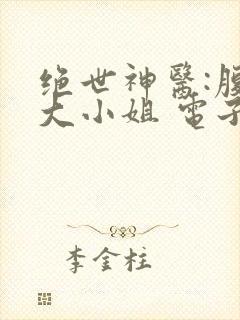 绝世神醫:
大小姐 電子
李金柱